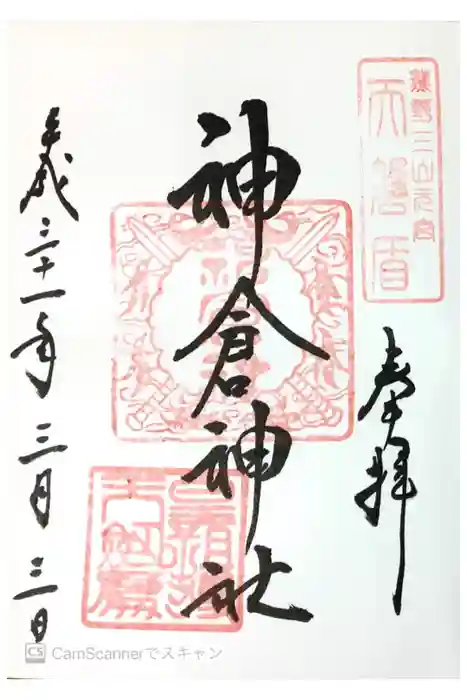 熊野三山元宮
天磐盾
奉拝
神倉神社
平成三十一年三月三日
CS CamScannerでスキャン